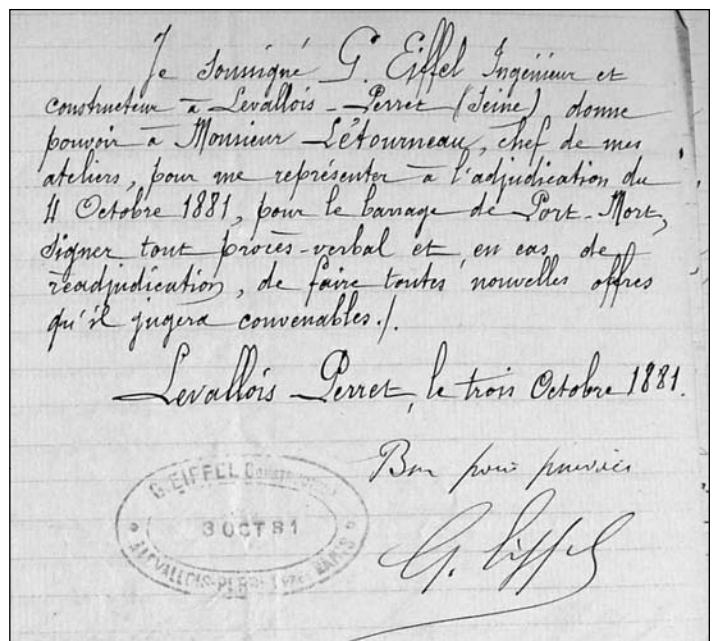 Je soussigné G. Eiffel Ingénieur et
constructeur à Levallois-Perret (Seine) donne
pouvoir à Monsieur Létourneau, chef de mes
ateliers, pour me représenter à l'adjudication du
4 Octobre 1881, pour le barrage de Port-Mort,
signer tout procès-verbal et en cas de
réadjudication, de faire toutes nouvelles offres
qu'il jugera convenables./.
Levallois Perret, le trois Octobre 1881.
Bon pour pouvoir
G. Eiffel
G. EIFFEL Constructeur
3 OCT 81
LEVALLOIS-PERRET PARIS